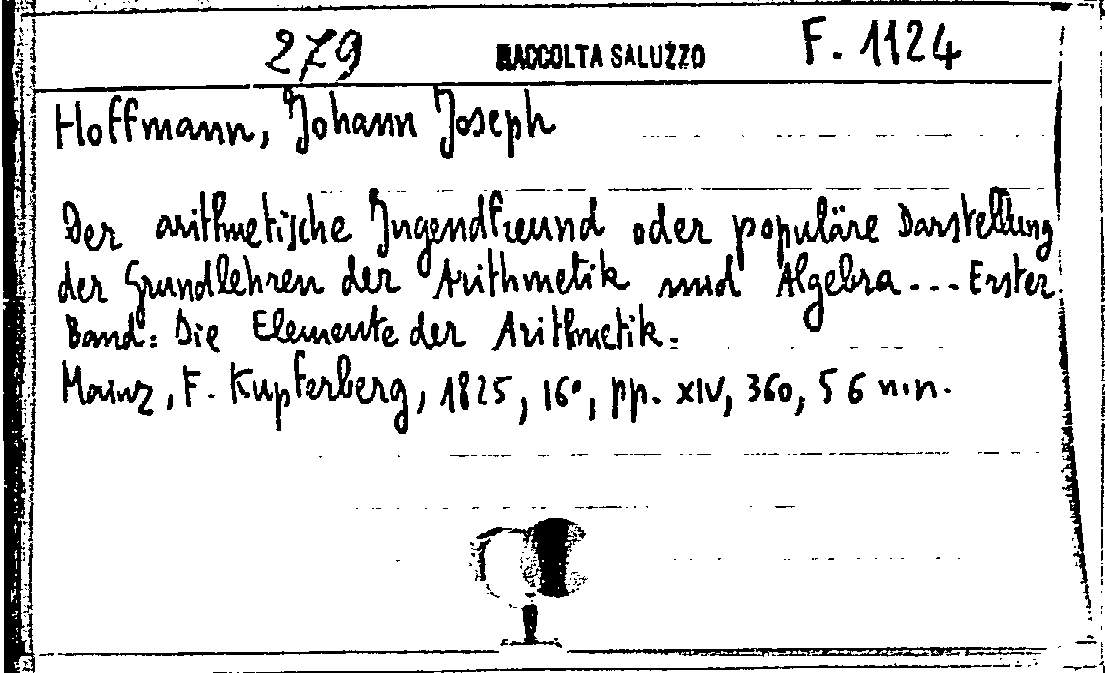 279 RACCOLTA SALUZZO F. 1124
Hoffmann, Johann Joseph
Der arithmetische Jugendfreund oder populäre Darstellung
der Grundlehren der Arithmetik und Algebra --- Erster
Band: Die Elemente der Arithmetik.
Mainz, F. Kupferberg, 1825, 16°, pp. XIV, 360, 56 n.n.